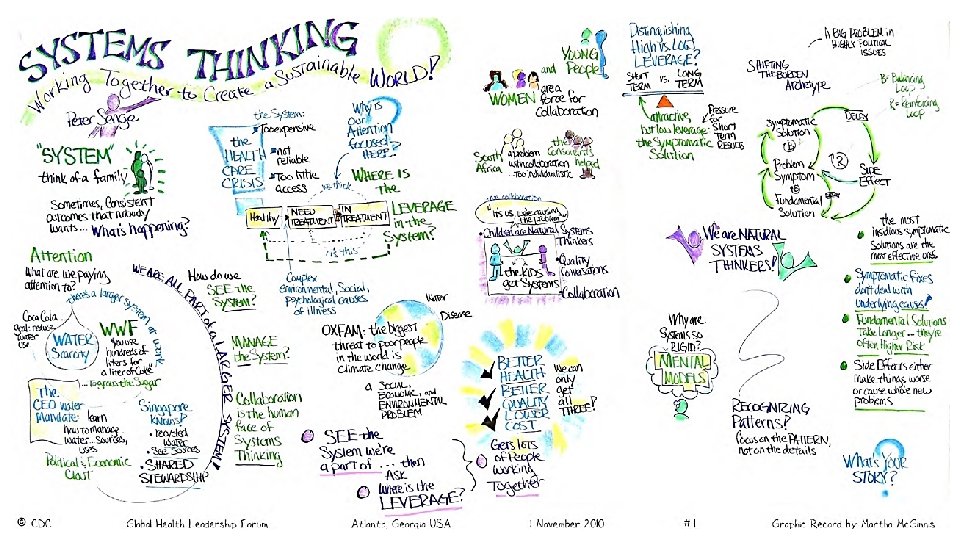 SYSTEMS THINKING
Working Together to Create a Sustainable WORLD!
Peter Senge
"SYSTEM"
think of a family
Sometimes, consistent
outcomes that nobody
wants... What's happening?
Attention
What are we paying
attention to?
there's a larger system at work
Coca Cola
WATER
Scarcity
WWF
You use
hundreds of
liters for
a liter of Coke
The
CEO Water
Mandate:
learn
how to manage
water... sources,
uses
Political & Economic
Clout
Singapore
Knows!
• recycled
water
SHARED
STEWARDSHIP
WE ARE ALL PART OF A LARGER SYSTEM!
the System:
• Too expensive
• not
reliable
• Too little
access
the
HEALTH
CARE
CRISIS
Why is
our
Attention
focused
HERE?
WHERE IS
the
LEVERAGE
in the
System?
Healthy
NEED
TREATMENT
IN
TREATMENT
Complex
environmental, social,
psychological causes
of illness
How do we
SEE the
System?
MANAGE
the System?
Collaboration
is the human
face of
Systems
Thinking
OXFAM: the biggest
threat to poor people
in the world is
climate change
Water
Disease
a SOCIAL,
ECONOMIC, and
ENVIRONMENTAL
PROBLEM
SEE the
System we're
a part of ... then
ASK
Where is the
LEVERAGE?
WOMEN
and
YOUNG
People
area
force for
collaboration
South
Africa
a problem
w/in collaboration
too individualistic
the
consultants
helped
Children are Natural Systems
Thinkers
the kids
got Systems
• Quality
Conversations
• Collaboration
BETTER
HEALTH
BETTER
QUALITY
LOWER
COST
We can
only
get
all
THREE!
Gets lots
of People
working
Together
Distinguishing
High vs. Low
LEVERAGE?
SHORT
TERM
vs.
LONG
TERM
attractive,
but low leverage:
the Symptomatic
Solution
Pressure
for
Short
Term
Results
A BIG PROBLEM IN
HIGHLY POLITICAL
ISSUES
SHIFTING
THE BURDEN
Archetype
B= Balancing
Loop
R= Reinforcing
Loop
Symptomatic
Solution
B
Problem
Symptom
B
Fundamental
Solution
DELAY
R
SIDE
EFFECT
We are NATURAL
SYSTEMS
THINKERS!
Why are
Systems so
RIGID?
MENTAL
MODELS
RECOGNIZING
Patterns?
Focus on the PATTERN,
not on the details
the most
insidious symptomatic
Solutions are the
most effective ones.
Symptomatic fixes
don't deal with
underlying causes!
Fundamental Solutions
Take longer ... they're
often Higher Risk
Side Effects either
make things worse
or cause whole new
problems
WHAT'S YOUR
STORY?
© CDC
Global Health Leadership Forum
Atlanta, Georgia USA
1 November 2010
#1
Graphic Record by Martha McGinnis